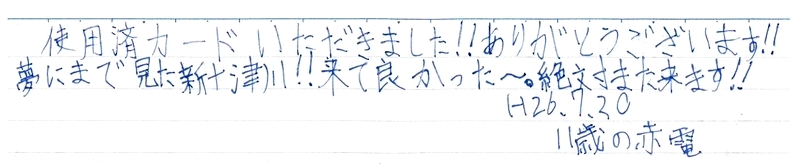 使用済カードいただきました!!ありがとうございます!!
夢にまで見た新十津川!!来て良かった〜。絶対また来ます!!
H26.7.20
11歳の赤電